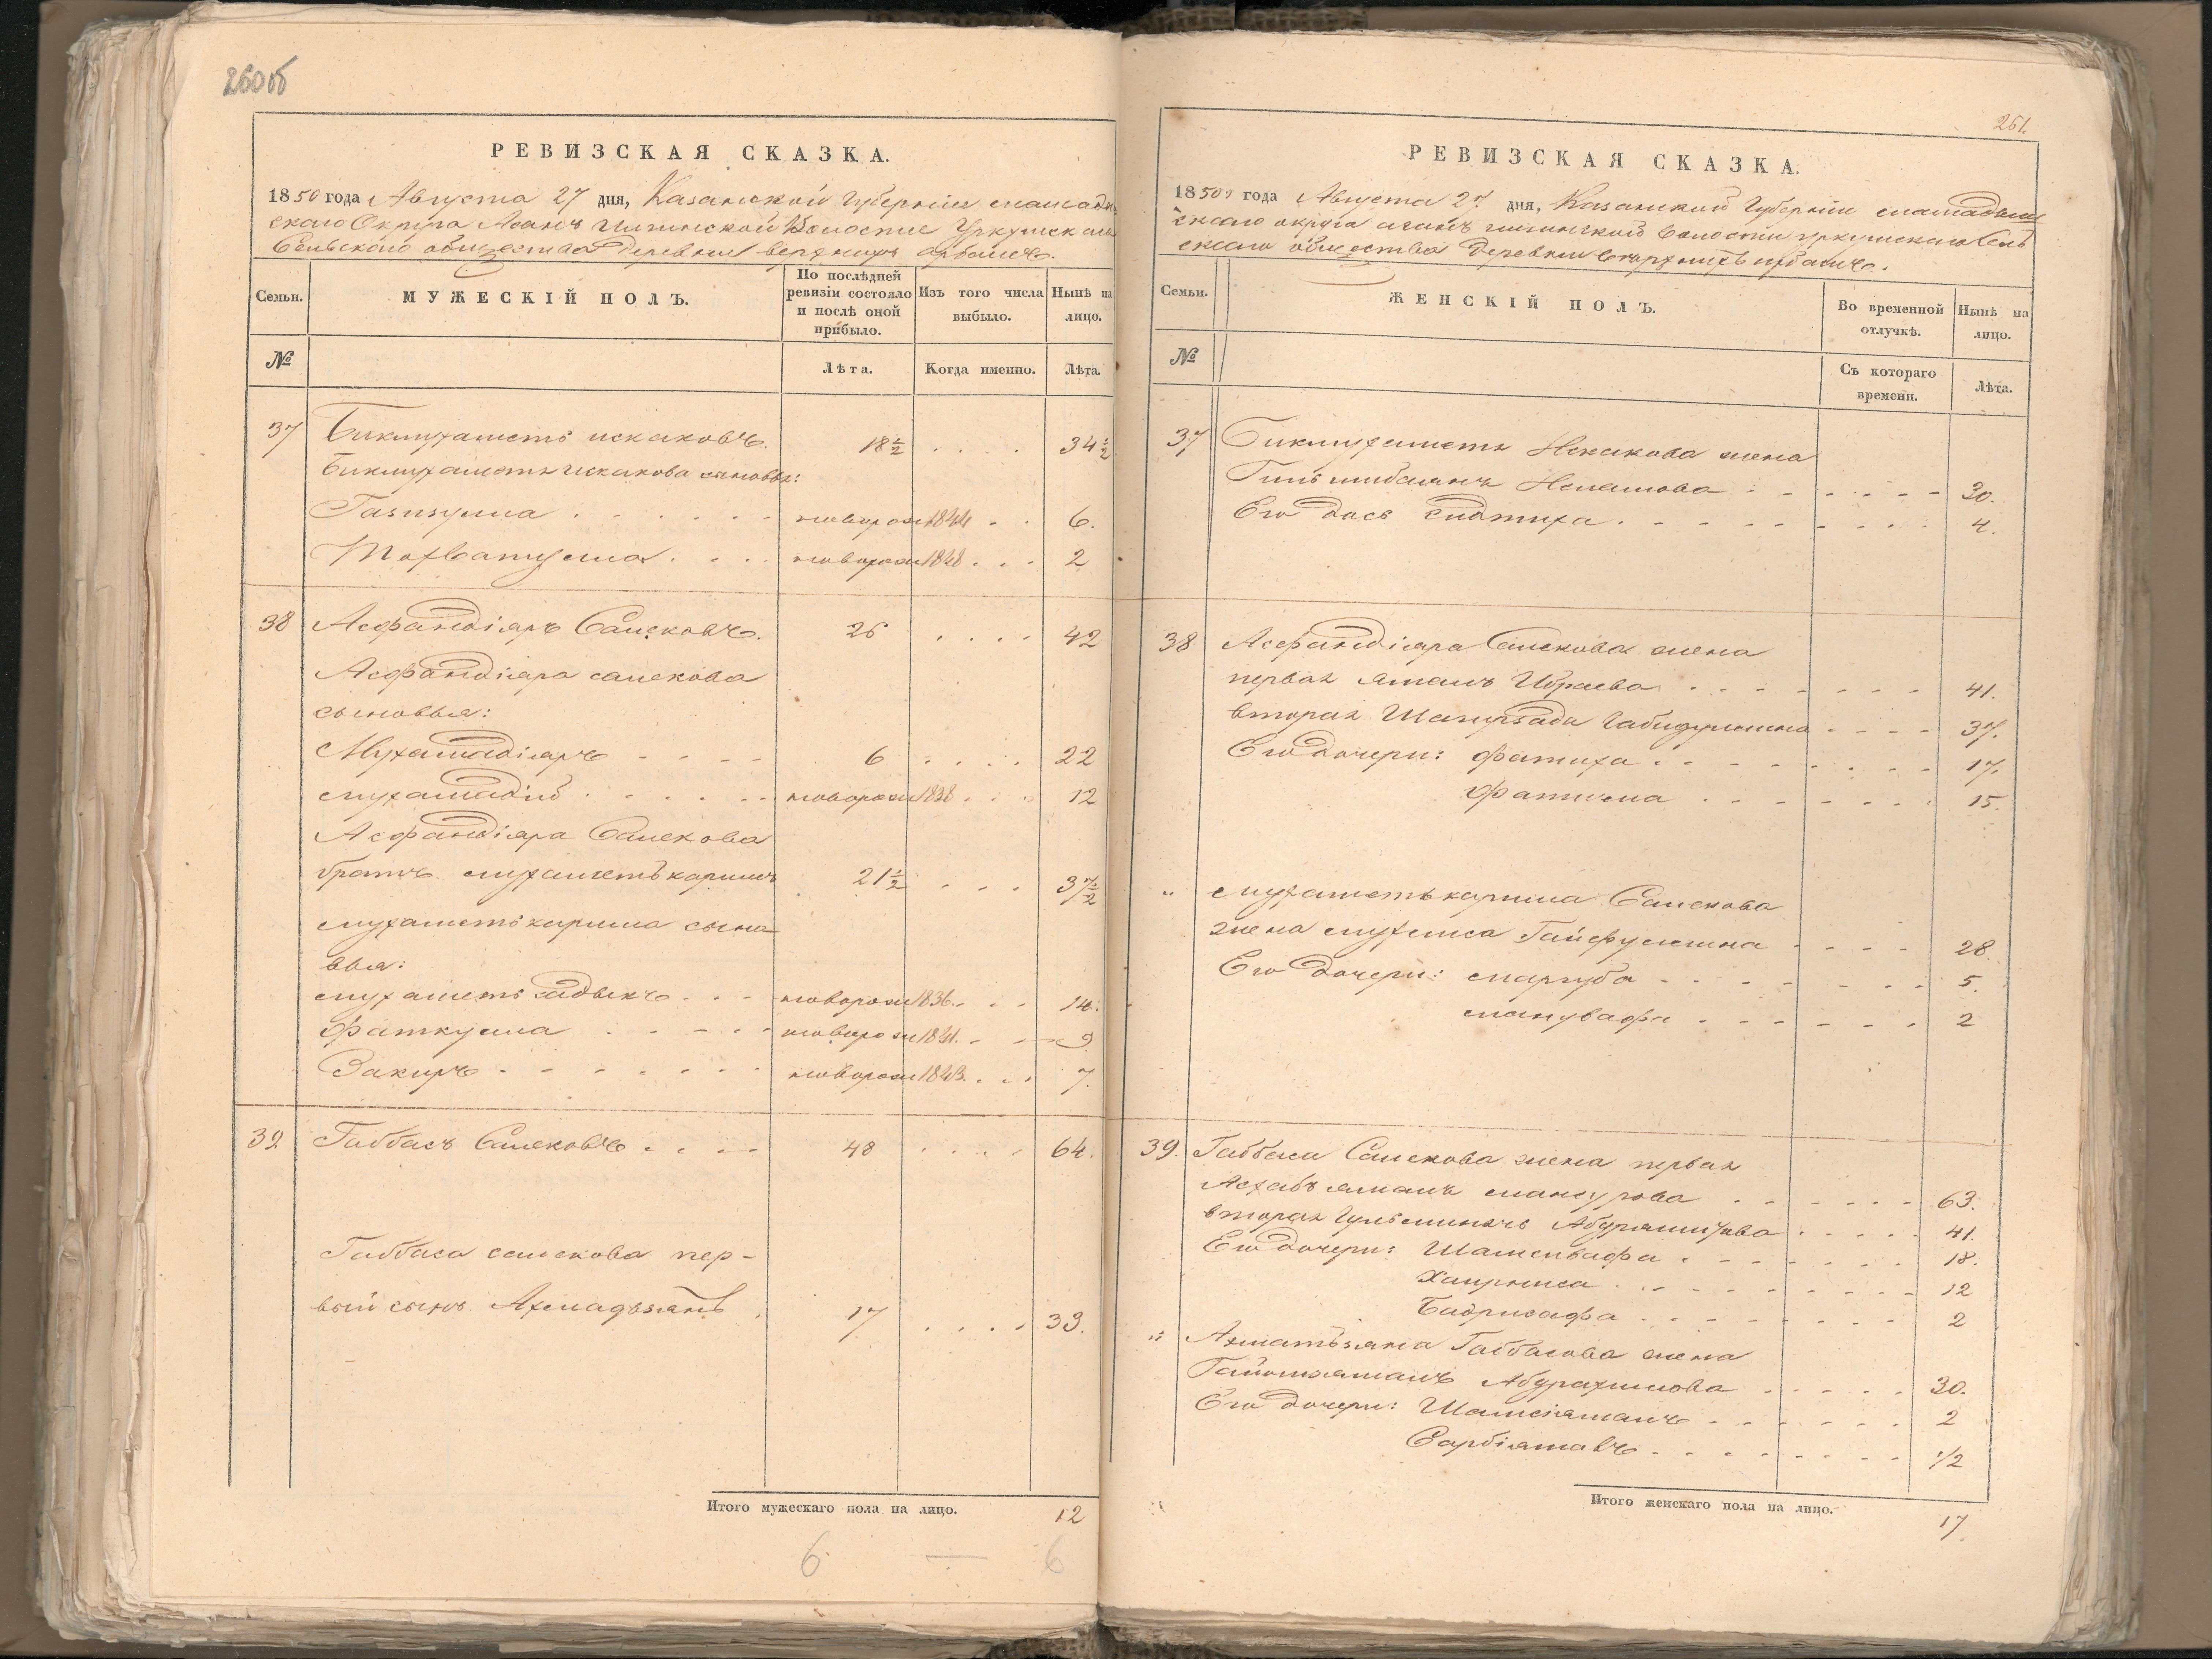 260об
РЕВИЗСКАЯ СКАЗКА.
1850 года Августа 27 дня, Казанской Губернии мамады
скаго Округа Асанъ Илгинской Волости Уркушскаго
Сельскаго общества Деревни верхнихъ арбашъ.
Семьи.
МУЖЕСКІЙ ПОЛЪ.
По послѣдней ревизіи состояло и послѣ оной прибыло.
Изъ того числа выбыло.
Нынѣ на лицо.
№
Лѣта.
Когда именно.
Лѣта.
37 Бикмухаметъ искаковъ. 18½ 34½
Бикмухаметя искакова сыновья:
Газизулла новорож 1844 6.
новорож 1848 2
38 Асфандіяръ Саисковъ. 26 42
Асфандіяра саискова
сыновья:
Мухамадіяръ 6 22
мухамадій новорож 1838 12
Асфандіяра Саискова
братъ мухаметькаримъ 21½ 37½
мухаметькарима сыно-
вья:
мухаметь садыкъ новорож 1836 14.
фаткулла новорож 1841. 9
Закиръ новорож 1843. 7.
39 Габбасъ Саисковъ 48 64.
Габбаса саискова пер-
вый сынъ Ахмадьзянъ 17 33.
Итого мужескаго пола на лицо. 12
6 — 6
261.
РЕВИЗСКАЯ СКАЗКА.
1850 года Августа 27 дня, Казанской Губерніи мамадыш
скаго округа асанъ илгинской волости уркушскаго Сель
скаго общества Деревни верхнихъ арбашъ.
Семьи.
ЖЕНСКІЙ ПОЛЪ.
Во временной отлучкѣ.
Нынѣ на лицо.
№
Съ котораго времени.
Лѣта.
37 Бикмухаметя Искакова жена
30.
Его дочь 4.
38 Асфандіяра Саискова жена
первая Ибраева 41.
вторая Габидуллина 37.
Его дочери: фатиха 17.
фатима 15.
„ мухаметькарима Саискова
жена Гайфуллина 28.
Его дочери: магруба 5.
2
39. Габбаса Саискова жена первая
мансурова 63.
вторая 41.
Его дочери: Шамсивафа 18.
Хаирниса 12
Бадрисафа 2
„ Ахматьзяна Габбасова жена
Абдрахимова 30.
Его дочери: 2
½
Итого женскаго пола на лицо.
17.